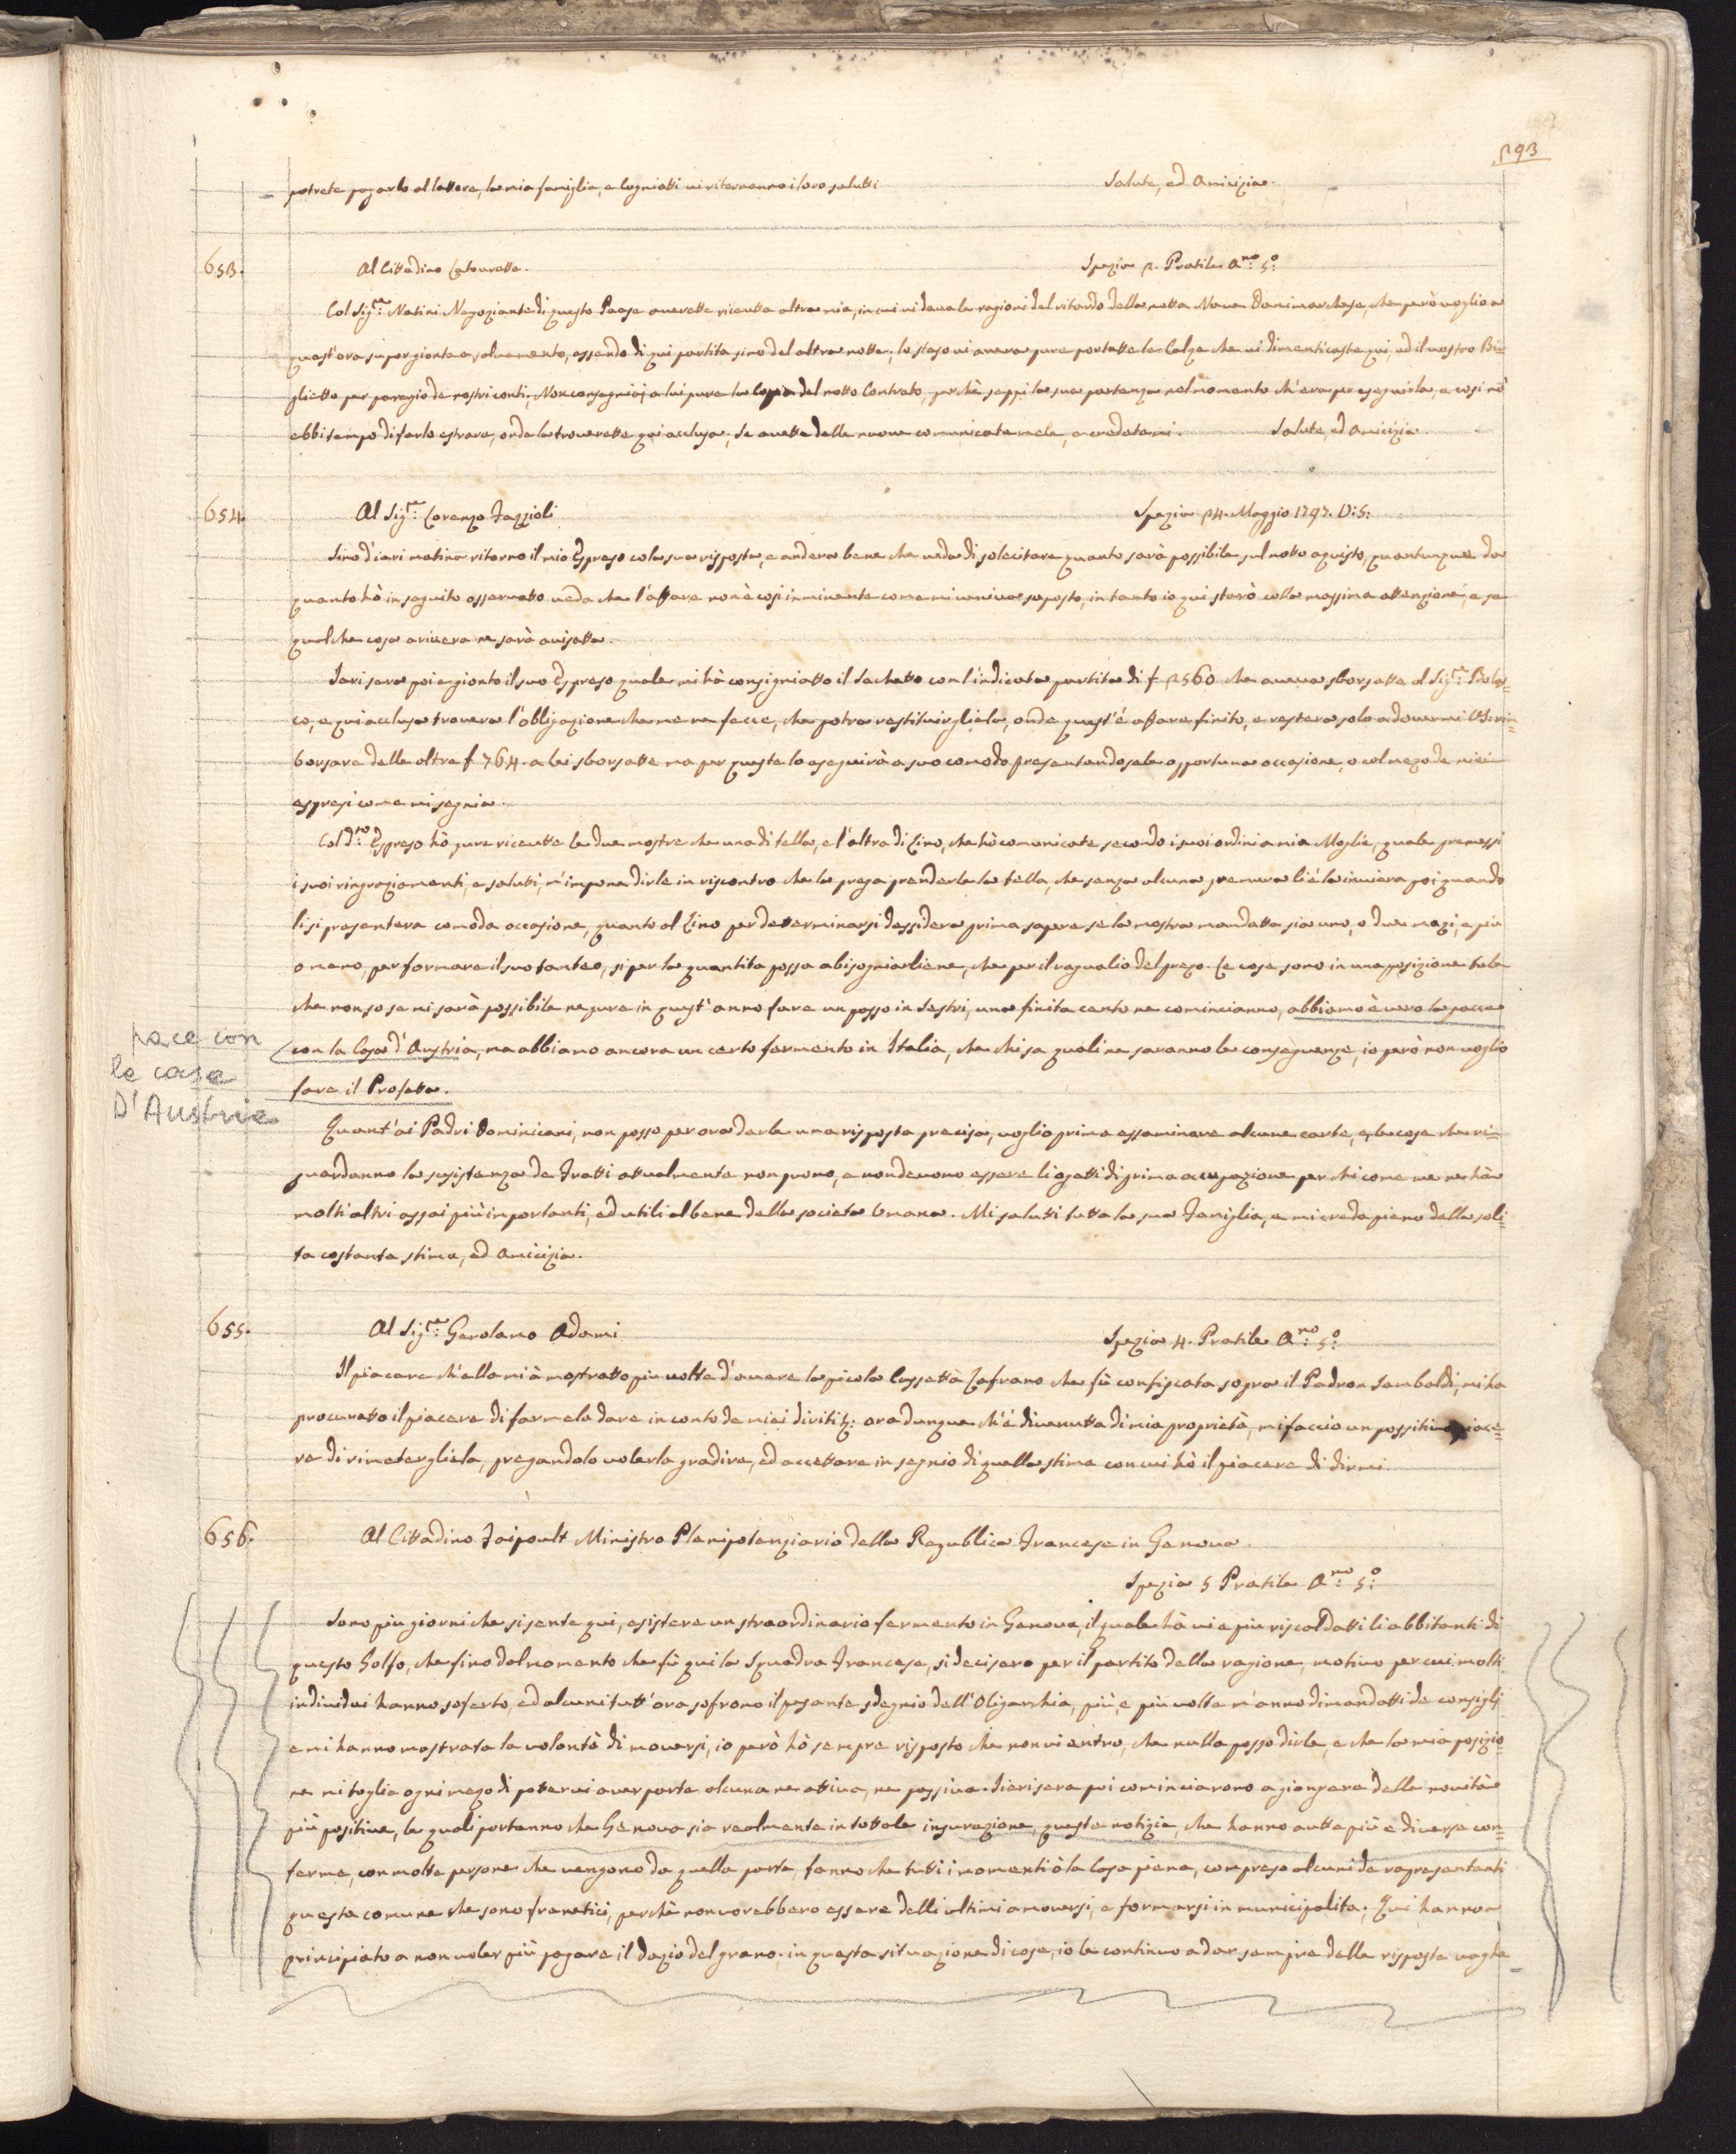 293
potrete pagarlo al lattore, la mia famiglia, e Cogniatti vi ritornanno i loro salutti Salute, ed Amicizia.
653. Al Cittadino Latourette. Spezia 2. Pratile A.no 5.o
Col Sig.re Natini Negoziante di questo Paese averette riceutta altra mia, in cui vi dava le ragioni del ritardo della notta Nave Danimarchese, che però voglio a
quest'ora supor gionta a salvamento, essendo di qui partita sino del altra notte; lo steso vi aveva pure portatte le Calze che vi dimenticaste qui, ed il vostro Bi=
glietto per paregio de nostri conti; Non consegniai a lui pure la Coppia del notto Contrato, perchè seppi la sua partenza nel momento ch'era per eseguirla, e cosi nò
ebbi tempo di farlo estrare, onde la troverette qui acclusa; Se avette delle nuove comunicatemele, e credetemi. Salute, ed Amicizia.
654. Al Sig.re Lorenzo Fazzioli Spezia 24. Maggio 1797. V: S:
Sino d'ieri matina ritorno il mio Espreso cola sua risposta, e andera bene che veda di solecitare quanto sarà possibile sul notto aquisto, quantunque da
quanto hò in seguito osservatto veda che l'affare non è cosi inminente come mi veniva suposto, in tanto io qui starò cola massima attenzione, e se
qualche cosa arivera ne sarà avisatta.
Jeri sera poi agionto il suo Espreso quale mi hà consigniatto il Sachetto con l'indicata partita di f 2560 che aveva sborsatte al Sig.re Bola=
co, e qui acclusa trovera l'obligazione che me ne fecce, che potra restituirgliela, onde quest'è affare finito, e restera solo a dovermi V.S. rim=
borsare delle altre f 764. a lei sborsatte ma per queste lo eseguirà a suo comodo presentandosele opportuna occasione, o col mezo de miei
espresi come mi segnia.
Col d.to Espreso hò pure riceutte le due mostre che una di tella, e l'altra di Lino, che hò comunicate secondo i suoi ordini a mia Moglie, quale premessi
i suoi ringraziamenti, e saluti, m'impone dirle in riscontro che la prega prenderle la tella, che senza alcuna premura lié la inviera poi quando
lisi presentera comoda occasione, quanto al Lino per detterminarsi dessidera prima sapere se la mostra mandatta sia uno, o due mazi, e più
o meno, per formare il suo tanteo, si per la quantita possa abisogniarliene, che per il raguaglio del prezo. Le cose sono in una posizione tale
che non so se mi sarà possibile ne pure in quest'anno fare un passo in Sestri, una finita cento ne comincianno, abbiamo è vero la pacce
con la Casa d'Austria, ma abbiamo ancora un certo fermento in Italia, che chi sa quali ne saranno le conseguenze, io però non voglio
fare il Profetta.
pace con
le case
D'Austria
Quant'ai Padri Dominicani, non posso per ora darle una risposta precisa, voglio prima essaminare alcune carte, e le cose che ri=
guardanno la susistenza de Fratti attualmente non puono, e non devono essere li ogetti di prima occupazione per chi come me ne hà
molti altri assai più importanti, ed utili al bene della societa Umana. Mi salutti tutta la sua Famiglia, e mi creda pieno della soli=
ta costante stima, ed Amicizia.
655. Al Sig.re Gerolamo Adami Spezia 4. Pratile A.no 5.o
Il piacere ch'ella mi à mostratto più volte d'avere la picola Cassetta Zafrano che fù confiscata sopra il Padron Sambaldi, mi ha
procuratto il piacere di farmela dare in conto de miei diriti &: ora dunque ch'é divenutta di mia proprietà, mi faccio un possitivo piace=
re di rimetergliela, pregandolo volerla gradire, ed accettare in segnio di quella stima con cui hò il piacere di dirmi
656. Al Cittadino Faipoult Ministro Plenipotenziario della Republica Francese in Genova.
Spezia 5 Pratile A.no 5.o
Sono più giorni che si sente qui, esistere un straordinario fermento in Genova, il quale hà vie più riscaldatti li abbitanti di
questo Golfo, che fino dal momento che fù qui la Squadra Francese, si decisero per il partito della ragione, motivo per cui molti
individui hanno soferto, ed alcuni tutt'ora sofrono il pesante sdegnio dell'Oligarchia, più, e più volte m'anno dimandatti de consigli
e mi hanno mostrata la volontà di moversi, io però hò sempre risposto che non vi entro, che nulla posso dirle, e che la mia posizio=
ne mi toglie ogni mezo di pottervi aver parte alcuna ne attiva, ne passiva. Jerisera poi cominciarono a giongere delle novità
più positive, le quali portanno che Genova sia realmente in tottale insurazione, queste notizie, che hanno autte più e diverse con=
ferme, con molte persone che vengono da quella parte, fanno che tutti i momenti ò la Casa piena, compreso alcuni de rapresentanti
questa comune che sono frenetici, perchè non vorebbero essere delli ultimi a moversi, e formarsi in municipalita. Qui hanno
principiato a non voler più pagare il dazio del grano; in questa situazione di cose, io le continuo a dar sempre delle risposte vaghe